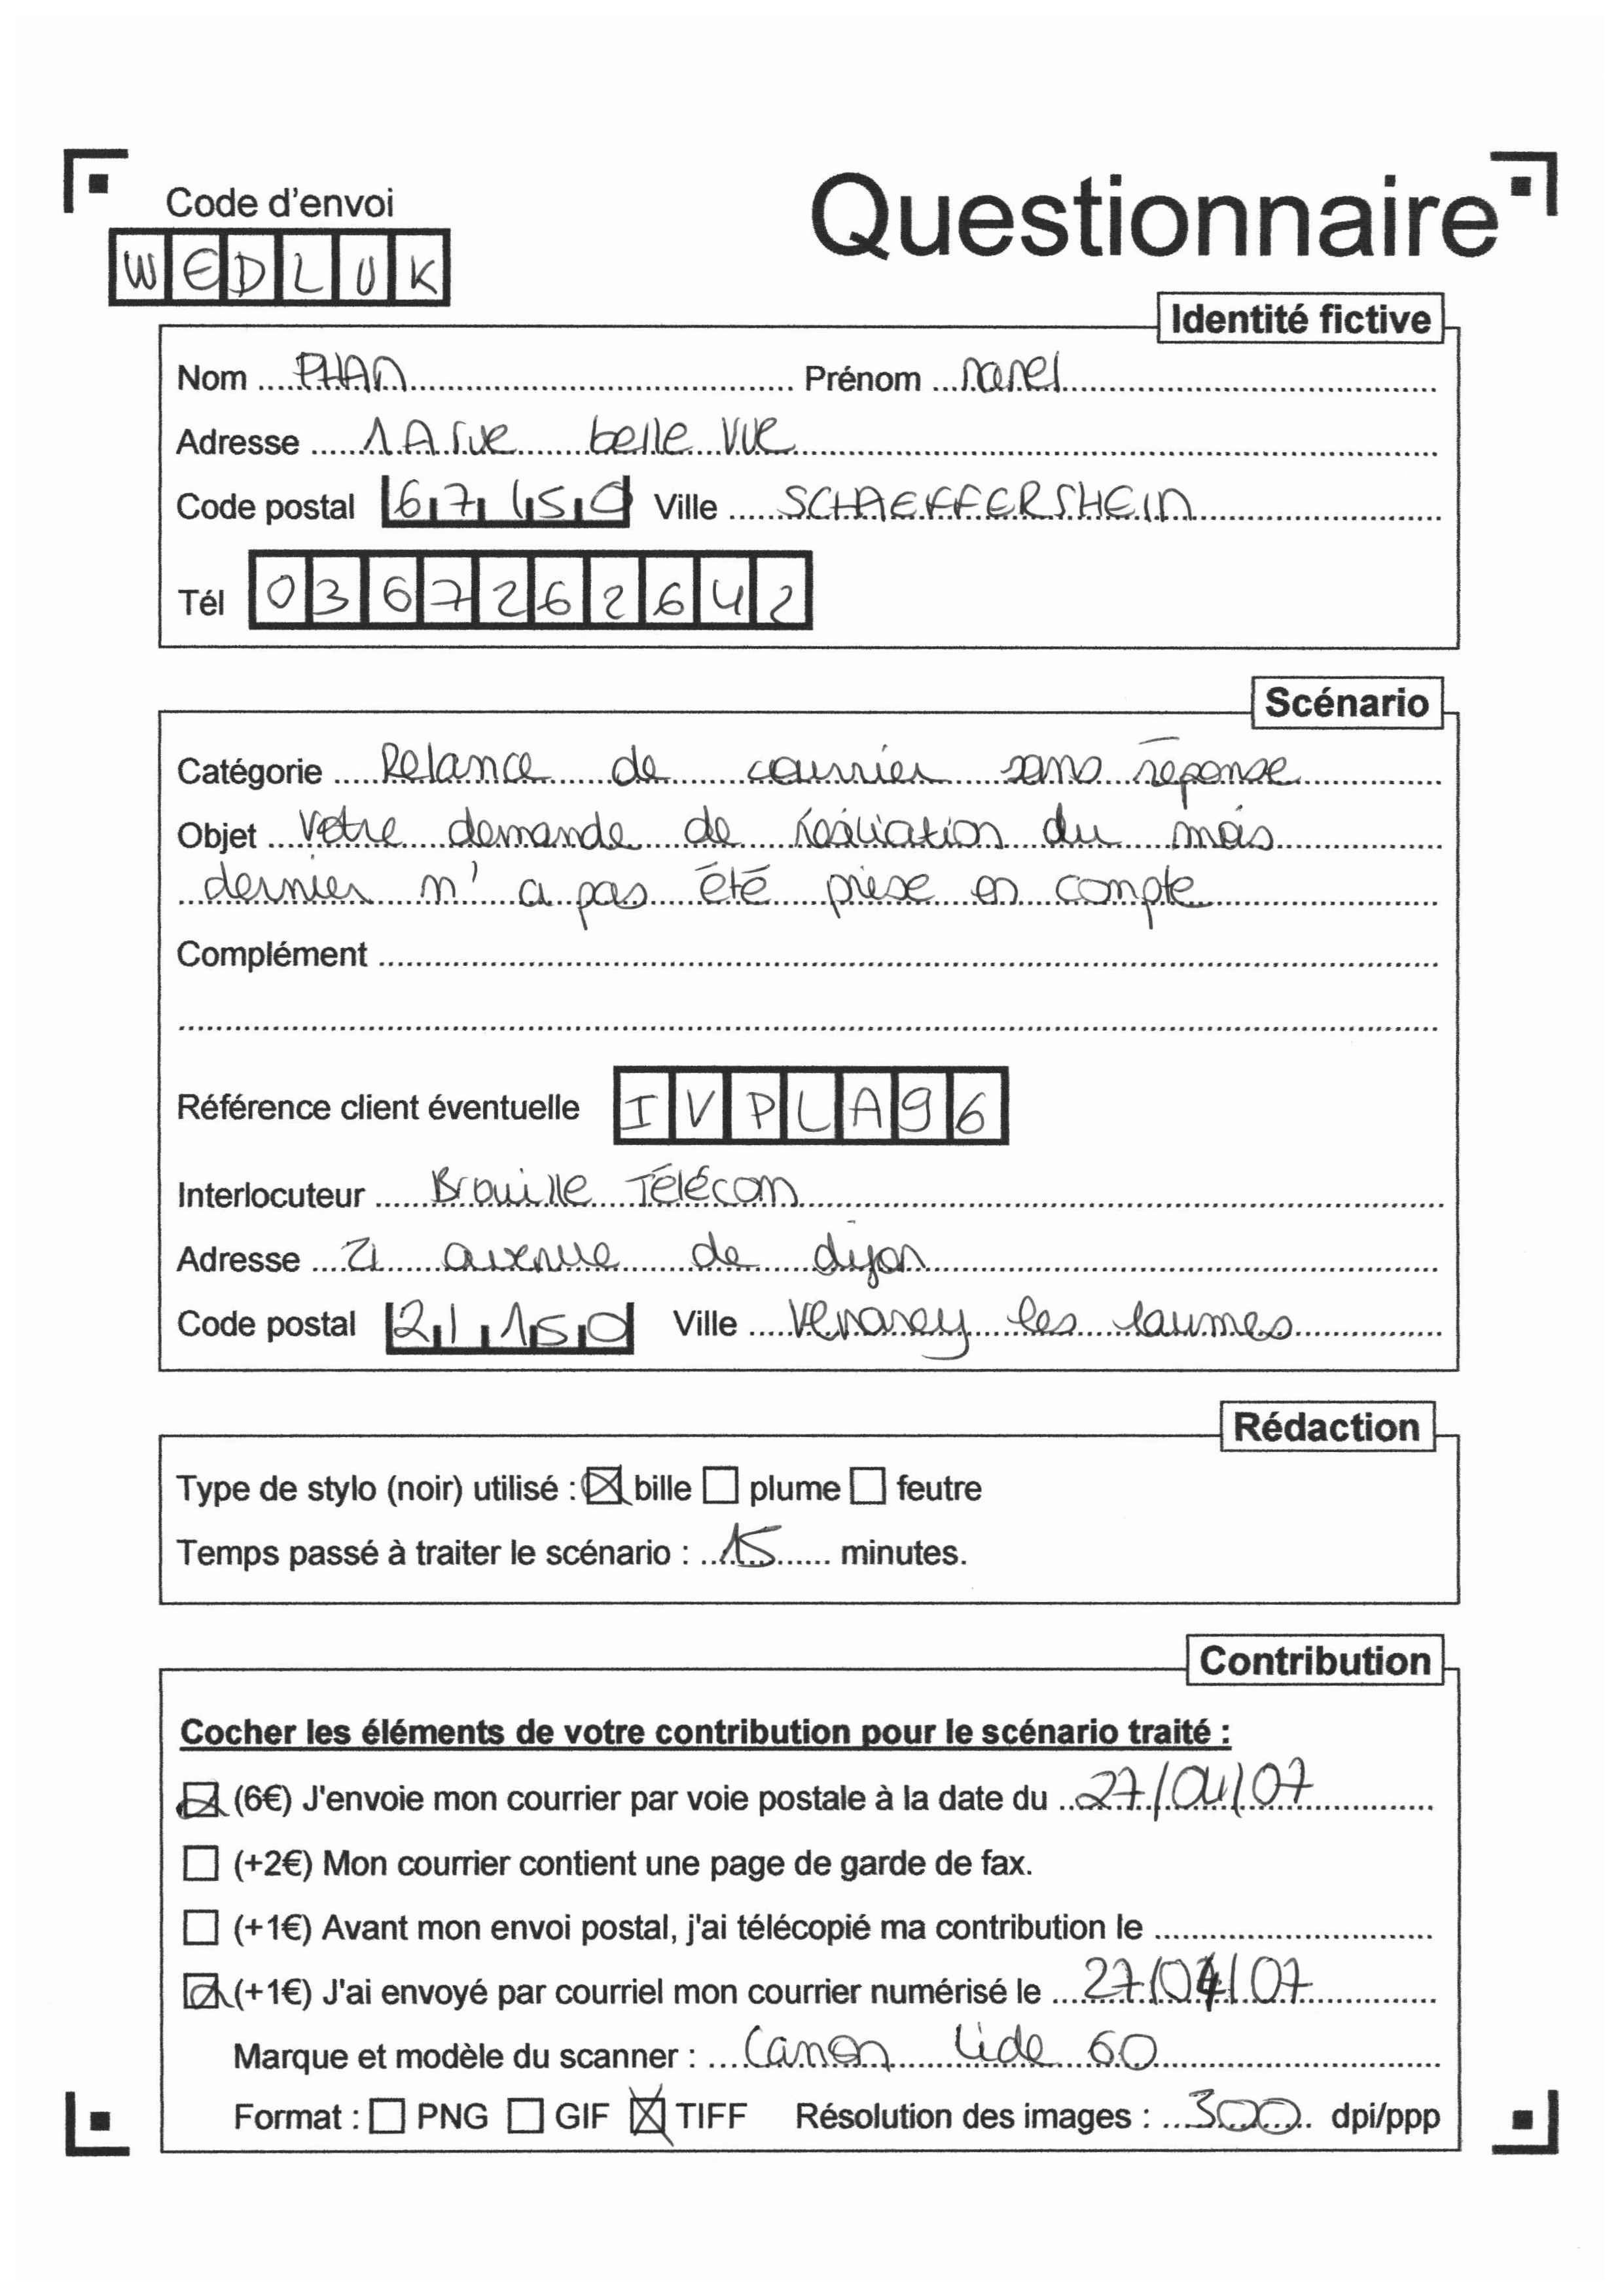 Code d'envoi
Questionnaire
WEDLUK
Identité fictive
Nom PHAN Prénom nanel
Adresse 1A rue belle vue
Code postal 67150 Ville SCHAEFFERSHEIN
Tél 0367262642
Scénario
Catégorie Relance de courrier sans réponse
Objet Votre demande de résiliation du mois
dernier n'a pas été prise en compte
Complément
Référence client éventuelle IVPLA96
Interlocuteur Brouille Télécom
Adresse 21 avenue de dijon
Code postal 21150 Ville Venarey les laumes
Rédaction
Type de stylo (noir) utilisé : bille plume feutre
Temps passé à traiter le scénario : 15 minutes.
Contribution
Cocher les éléments de votre contribution pour le scénario traité :
(6€) J'envoie mon courrier par voie postale à la date du 27/04/07
(+2€) Mon courrier contient une page de garde de fax.
(+1€) Avant mon envoi postal, j'ai télécopié ma contribution le
(+1€) J'ai envoyé par courriel mon courrier numérisé le 27/04/07
Marque et modèle du scanner : Canon Lide 60
Format : PNG GIF TIFF Résolution des images : 300 dpi/ppp